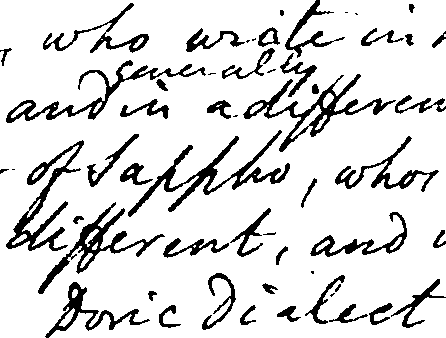 , who write in
generally
and in a differen
of Sappho, whos
different, and
Doric Dialect